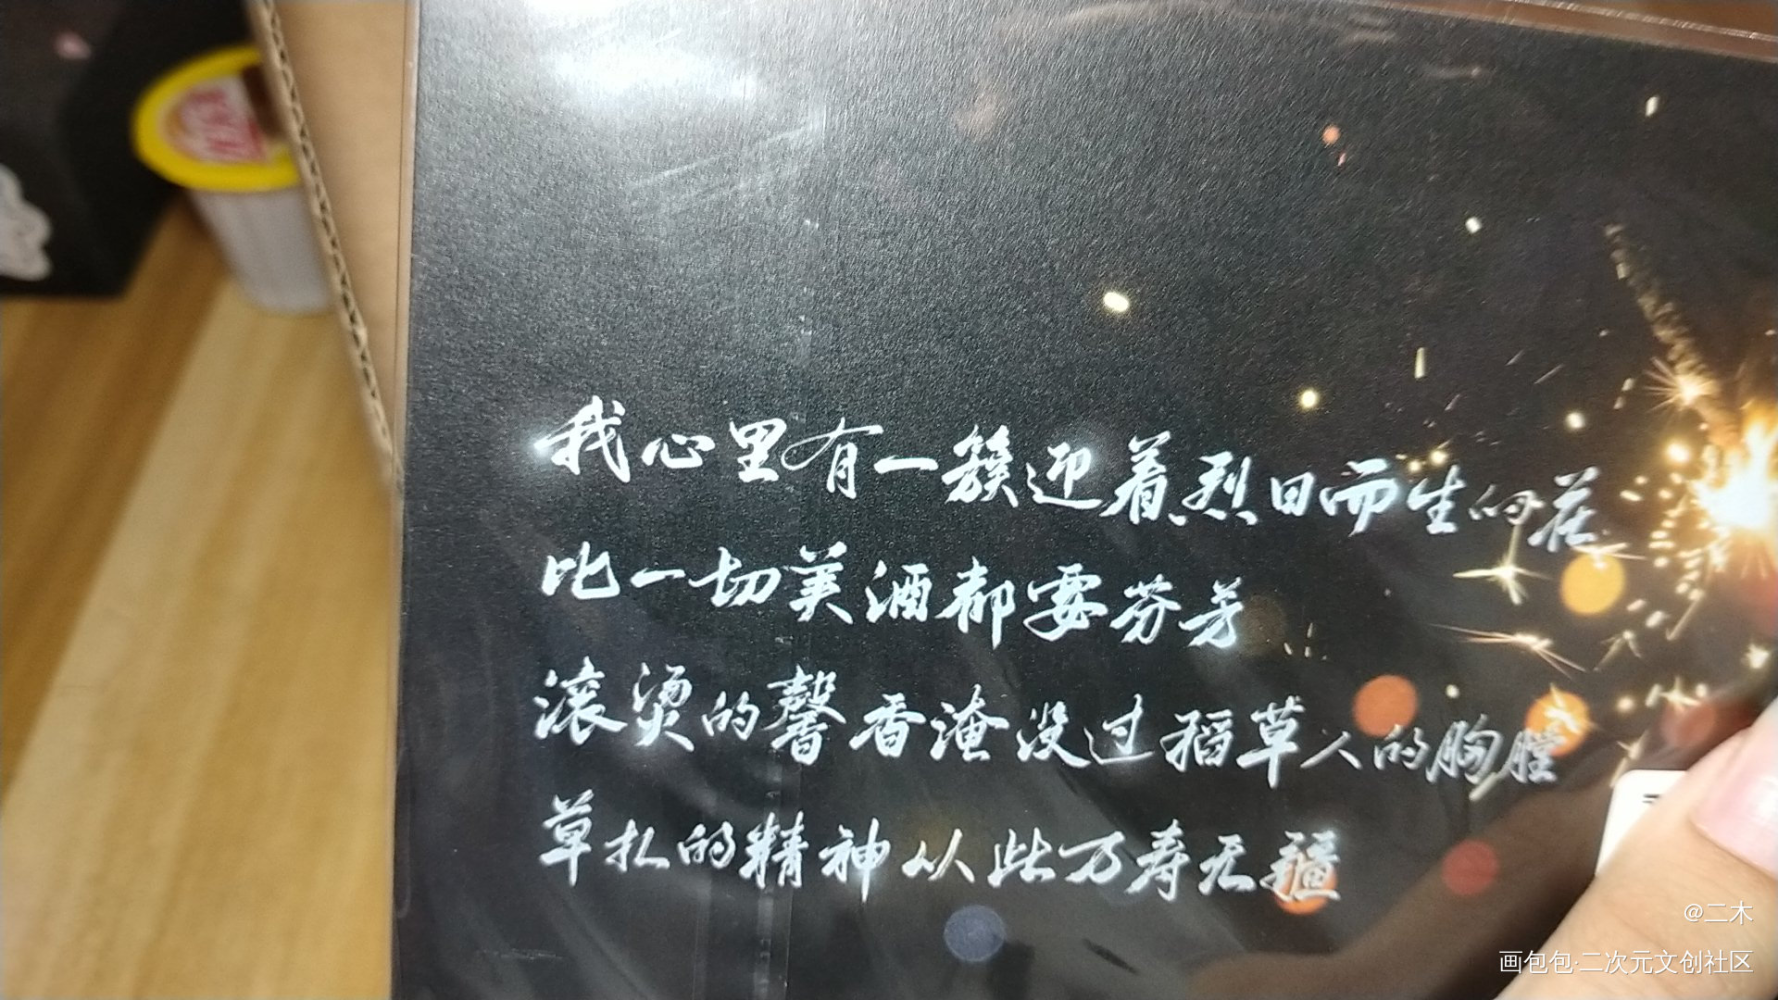 我心里有一簇迎着烈日而生的花
比一切美酒都要芬芳
滚烫的馨香淹没过稻草人的胸膛
草扎的精神从此万寿无疆
@二木
画包包·二次元文创社区